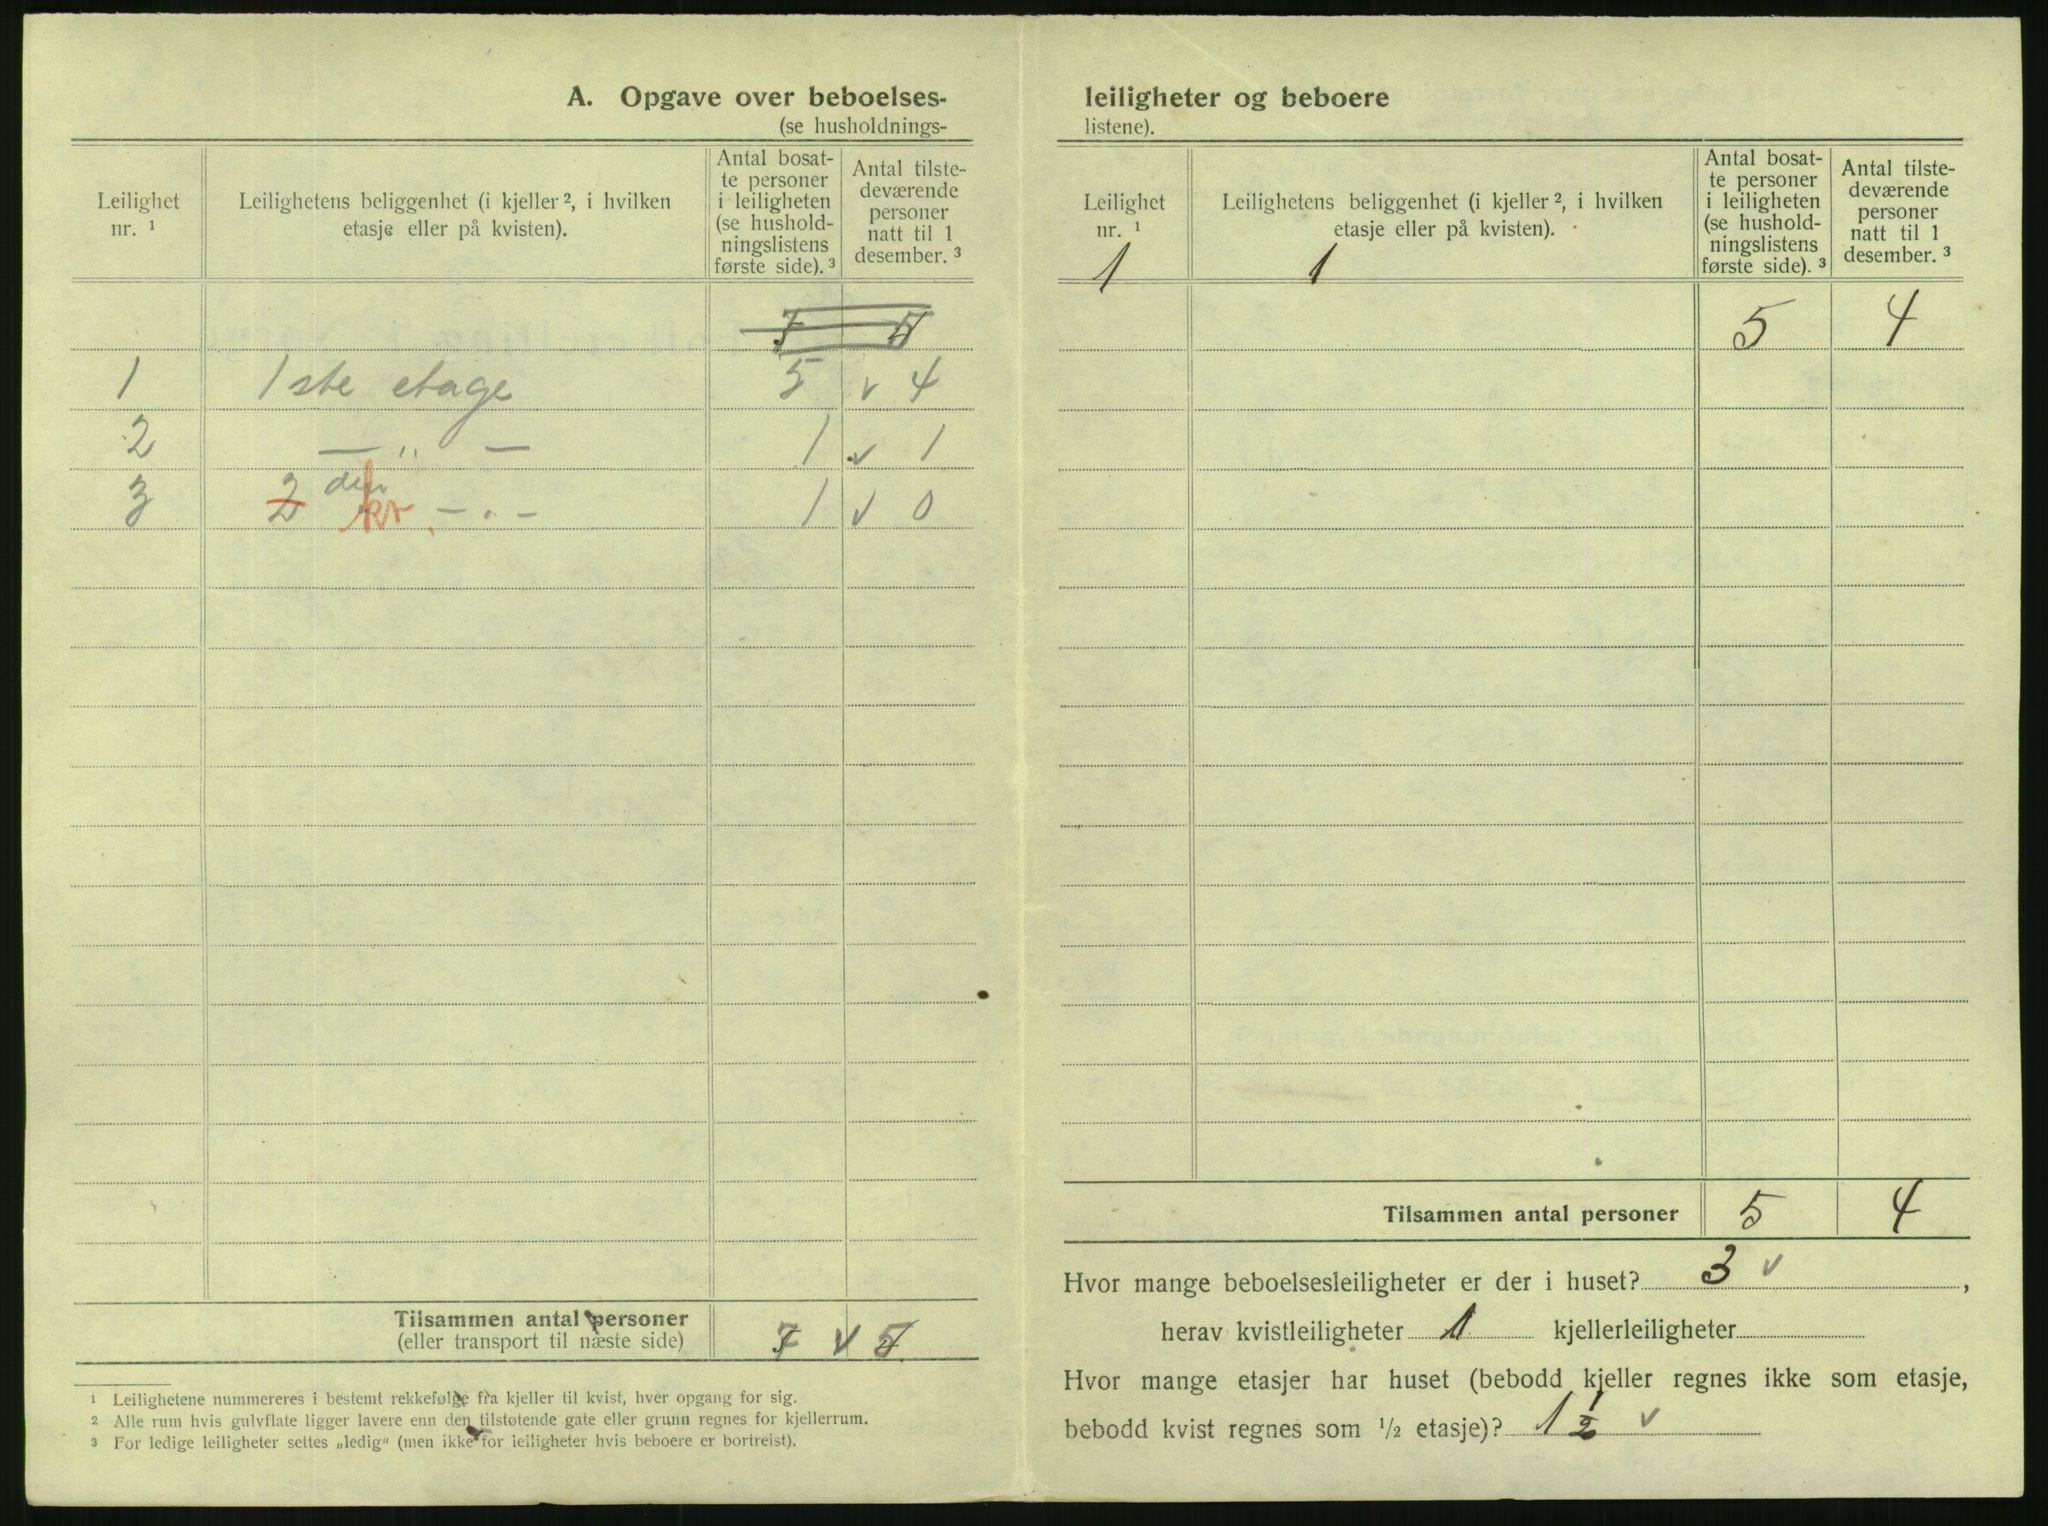 A. Opgave over beboelses-
(se husholdnings-
Leilighet nr. ¹
Leilighetens beliggenhet (i kjeller ², i hvilken etasje eller på kvisten).
Antal bosat-
te personer
i leiligheten
(se hushold-
ningslistens
første side). ³
Antal tilste-
deværende
personer
natt til 1
desember. ³
7 5
1 1ste etage 5 v 4
2 — " — 1 v 1
3 2 den kv. – . – 1 v 0
Tilsammen antal personer
(eller transport til næste side) 7 v 5
¹ Leilighetene nummereres i bestemt rekkefølge fra kjeller til kvist, hver opgang for sig.
² Alle rum hvis gulvflate ligger lavere enn den tilstøtende gate eller grunn regnes for kjellerrum.
³ For ledige leiligheter settes „ledig“ (men ikke for leiligheter hvis beboere er bortreist).
leiligheter og beboere
listene).
Leilighet nr. ¹
Leilighetens beliggenhet (i kjeller ², i hvilken etasje eller på kvisten).
Antal bosat-
te personer
i leiligheten
(se hushold-
ningslistens
første side). ³
Antal tilste-
deværende
personer
natt til 1
desember. ³
1 1
5 4
Tilsammen antal personer 5 4
Hvor mange beboelsesleiligheter er der i huset? 3 v ,
herav kvistleiligheter 1 kjellerleiligheter
Hvor mange etasjer har huset (bebodd kjeller regnes ikke som etasje,
bebodd kvist regnes som ½ etasje)? 1 ½ v